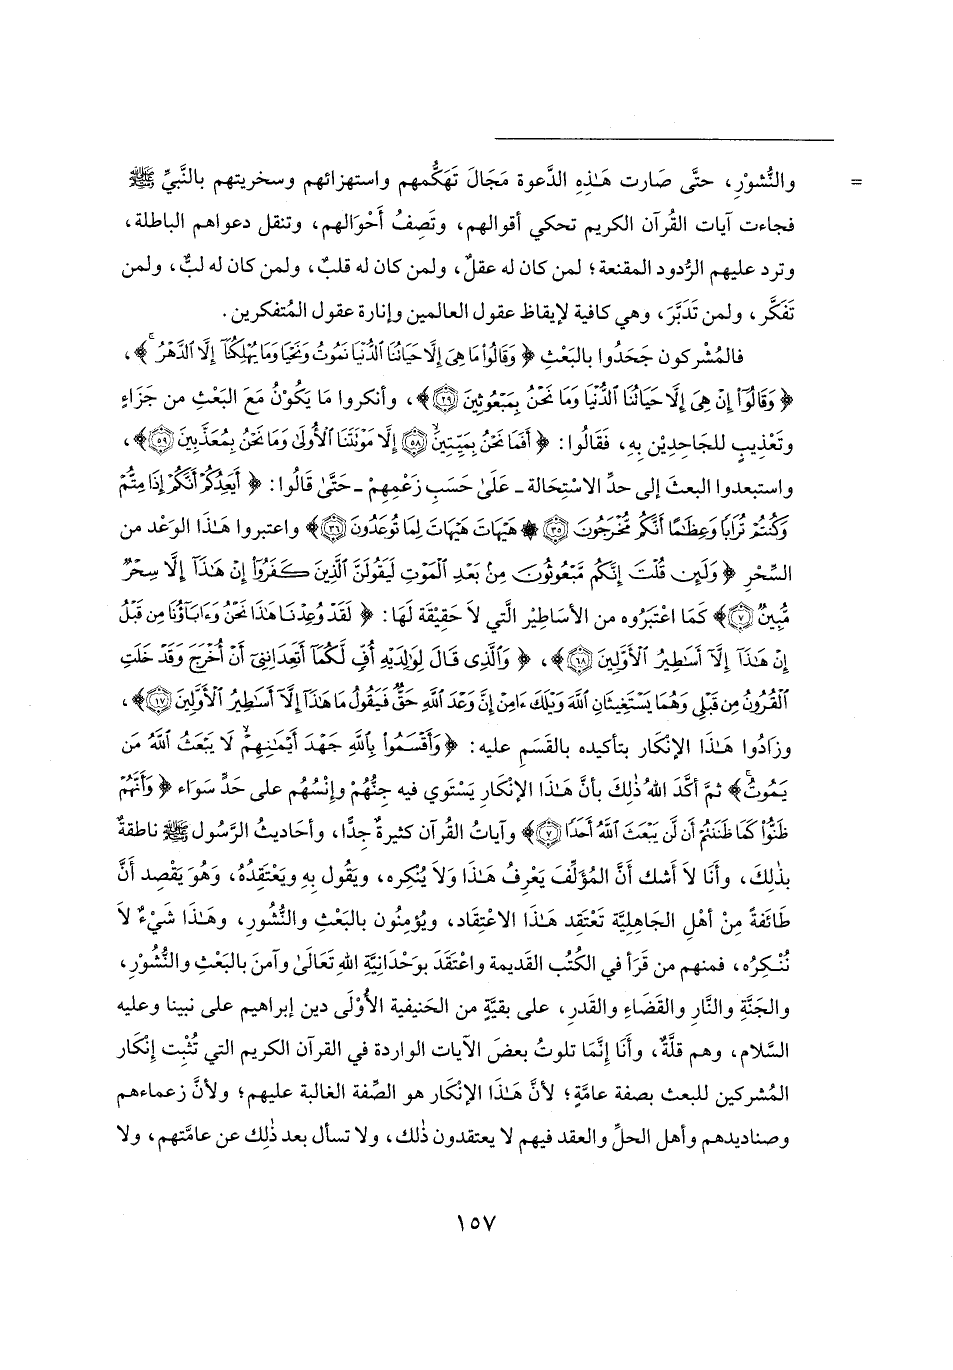 = والنُّشوْرِ، حتَّى صَارت هَـٰذِهِ الدَّعوة مَجَالَ تَهَكُّمهم واستهزائهم وسخريتهم بالنَّبيِّ ﷺ
فجاءت آيات القُرآن الكريم تحكي أقوالهم، وتَصِفُ أَحْوَالهم، وتنقل دعواهم الباطلة،
وترد عليهم الرُّدود المقنعة؛ لمن كان له عقلٌ، ولمن كان له قلبٌ، ولمن كان له لبٌّ، ولمن
تَفَكَّر، ولمن تَدَبَّرَ، وهي كافية لإيقاظ عقول العالمين وإنارة عقول المُتفكرين.
فالمُشركون جَحَدُوا بالبَعْثِ ﴿ وَقَالُوا۟ مَا هِىَ إِلَّا حَيَاتُنَا ٱلدُّنْيَا نَمُوتُ وَنَحْيَا وَمَا يُهْلِكُنَآ إِلَّا ٱلدَّهْرُ ۚ ﴾،
﴿ وَقَالُوٓا۟ إِنْ هِىَ إِلَّا حَيَاتُنَا ٱلدُّنْيَا وَمَا نَحْنُ بِمَبْعُوثِينَ ٢٩﴾، وأنكروا مَا يَكُوْنُ مَعَ البَعْثِ من جَزَاءٍ
وتَعْذِيبٍ للجَاحِدِيْن بِهِ، فَقَالُوا: ﴿ أَفَمَا نَحْنُ بِمَيِّتِينَ ٥٨ إِلَّا مَوْتَتَنَا ٱلْأُولَىٰ وَمَا نَحْنُ بِمُعَذَّبِينَ ٥٩﴾،
واستبعدوا البعثَ إلى حدِّ الاسْتِحَالة ـ عَلَىٰ حَسَبِ زَعْمِهِمْ ـ حَتَّىٰ قَالُوا: ﴿ أَيَعِدُكُمْ أَنَّكُمْ إِذَا مِتُّمْ
وَكُنتُمْ تُرَابًا وَعِظَٰمًا أَنَّكُم مُّخْرَجُونَ ٣٥ ۞ هَيْهَاتَ هَيْهَاتَ لِمَا تُوعَدُونَ ٣٦﴾ واعتبروا هَـٰذا الوَعْد من
السِّحْرِ ﴿ وَلَئِن قُلْتَ إِنَّكُم مَّبْعُوثُونَ مِنۢ بَعْدِ ٱلْمَوْتِ لَيَقُولَنَّ ٱلَّذِينَ كَفَرُوٓا۟ إِنْ هَٰذَآ إِلَّا سِحْرٌ
مُّبِينٌ ٧﴾ كَمَا اعْتَبَرُوه من الأسَاطِيْر الَّتي لاَ حَقِيْقَة لَهَا: ﴿ لَقَدْ وُعِدْنَا هَٰذَا نَحْنُ وَءَابَآؤُنَا مِن قَبْلُ
إِنْ هَٰذَآ إِلَّآ أَسَٰطِيرُ ٱلْأَوَّلِينَ ٦٨﴾، ﴿ وَٱلَّذِى قَالَ لِوَٰلِدَيْهِ أُفٍّ لَّكُمَآ أَتَعِدَانِنِىٓ أَنْ أُخْرَجَ وَقَدْ خَلَتِ
ٱلْقُرُونُ مِن قَبْلِى وَهُمَا يَسْتَغِيثَانِ ٱللَّهَ وَيْلَكَ ءَامِنْ إِنَّ وَعْدَ ٱللَّهِ حَقٌّ فَيَقُولُ مَا هَٰذَآ إِلَّآ أَسَٰطِيرُ ٱلْأَوَّلِينَ ١٧﴾،
وزَادُوا هَـٰذَا الإنْكَار بتأكيده بالقَسَمِ عليه: ﴿ وَأَقْسَمُوا۟ بِٱللَّهِ جَهْدَ أَيْمَٰنِهِمْ ۙ لَا يَبْعَثُ ٱللَّهُ مَن
يَمُوتُ ۚ﴾ ثمَّ أكَّدَ اللهُ ذٰلِكَ بأنَّ هَـٰذَا الإنْكَارِ يَسْتَوي فيه جِنُّهُمْ وإنْسُهُم على حَدٍّ سَوَاء ﴿ وَأَنَّهُمْ
ظَنُّوا۟ كَمَا ظَنَنتُمْ أَن لَّن يَبْعَثَ ٱللَّهُ أَحَدًا ٧﴾ وآياتُ القُرآن كثيرةٌ جِدًّا، وأحاديثُ الرَّسولِ ﷺ ناطقةٌ
بذٰلِكَ، وأَنَا لاَ أشك أنَّ المُؤلِّفَ يَعْرِفُ هَـٰذَا وَلاَ يُنْكِره، ويَقُول بِهِ ويَعْتَقِدُهُ، وَهُوَ يَقْصِد أنَّ
طَائَفةً مِنْ أهْلِ الجَاهِليَّة تَعْتَقِد هَـٰذَا الاعْتِقَاد، ويُؤمِنُون بالبَعْثِ والنُّشُور، وهَـٰذَا شَيْءٌ لاَ
نُنْكِرُه، فمنهم من قَرَأ في الكُتُب القديمة واعْتَقَدَ بوَحْدَانيَّةِ اللهِ تَعَالَىٰ وآمنَ بالبَعْثِ والنُّشُوْرِ،
والجَنَّةِ والنَّارِ والقَضَاءِ والقَدرِ، على بقيَّةٍ من الحَنيفية الأُوْلَى دين إبراهيم على نبينا وعليه
السَّلام، وهم قلَّةٌ، وأَنَا إنَّمَا تلوتُ بعضَ الآيات الواردة في القرآن الكريم التي تُثْبِت إنْكَار
المُشركين للبعث بصفة عامَّةٍ؛ لأنَّ هَـٰذَا الإنْكَار هو الصِّفة الغالبة عليهم؛ ولأنَّ زعماءهم
وصناديدهم وأهل الحلِّ والعقد فيهم لا يعتقدون ذٰلك، ولا تسأل بعد ذٰلِك عن عامَّتهم، ولا
١٥٧